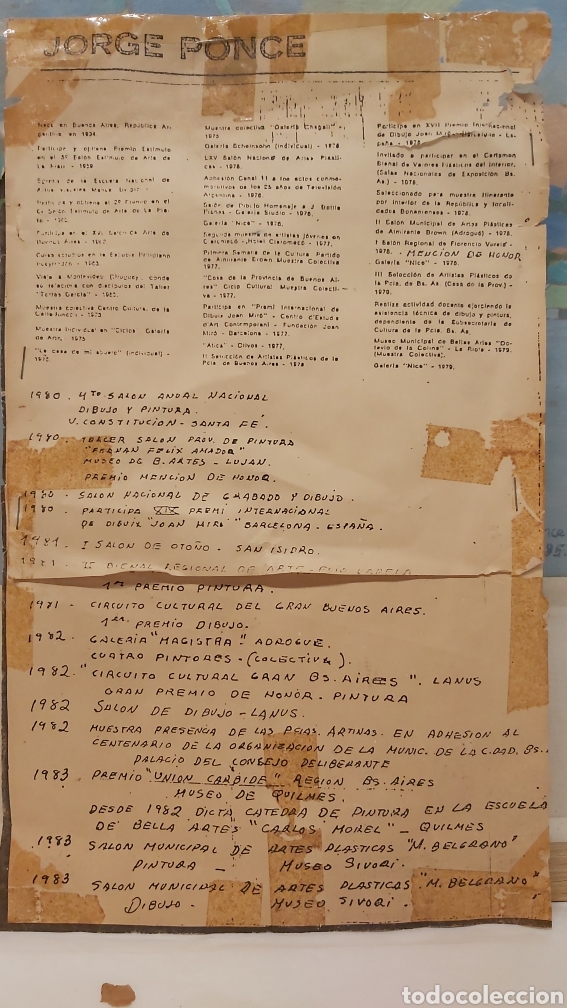 JORGE PONCE
Nace en Buenos Aires, República Ar-
gentina, en 1934
Participa y obtiene Premio Estímulo
en el 5º Salón Estímulo de Arte de
La Plata - 1959.
Egresa de la Escuela Nacional de
Participa y obtiene el 2º Premio en el
Salón Estímulo de Arte de La Pla-
Participa en el XVI Salón de Arte de
Viaja a Montevideo (Uruguay), donde
se relaciona con discípulos del Taller
"Torres García" - 1963.
Muestra colectiva Centro Cultural de la
Calle Junín - 1973
Muestra individual en "Ciclos" Galería
de Arte,
"La casa de mi abuelo" (individual) -
1975.
Muestra colectiva "Galería Chagall" -
1975
Galería Scheinsohn (individual) - 1976
LXV Salón Nacional de Artes Plásti-
cas - 1976.
Adhesión Canal 11 a los actos conme-
morativos de los 25 años de Televisión
Argentina - 1976.
Salón de Dibujo Homenaje a J. Batlle
Planas - Galería Studio - 1976.
Galería "Nice" - 1976.
Segunda muestra de artistas jóvenes en
Claromecó - Hotel Claromecó - 1977.
Primera Semana de la Cultura Partido
de Almirante Brown Muestra Colectiva
1977.
"Casa de la Provincia de Buenos Ai-
res" Ciclo Cultural Muestra Colecti-
va 1977.
Participa en "Premi Internacional de
Dibuix Joan Miró" - Centro d'Estudis
d'Art Contemporani - Fundación Joan
Miró - Barcelona - 1977.
"Atica" - Olivos - 1977.
II Selección de Artistas Plásticos de la
Pcia. de Buenos Aires - 1978
Participa en XVII Premio Internacional
de Dibujo Joan Miró - Barcelona - Es-
paña - 1978.
Invitado a participar en el Certamen
Bienal de Valores Plásticos del Interior,
(Salas Nacionales de Exposición Bs.
As.) - 1978.
Seleccionado para muestra itinerante
por interior de la República y locali-
dades Bonaerenses - 1978.
II Salón Municipal de Artes Plásticas
de Almirante Brown (Adrogué) - 1978.
I Salón Regional de Florencio Varela -
1978. - MENCION DE HONOR
Galería "Nice" - 1978.
III Selección de Artistas Plásticos de
la Pcia. de Bs. As. (Casa de la Prov.) -
1979.
Realiza actividad docente ejerciendo la
asistencia técnica de dibujo y pintura,
dependiente de la Subsecretaría de
Cultura de la Pcia. Bs. As.
Museo Municipal de Bellas Artes "Oc-
tavio de la Colina" - La Rioja - 1979.
(Muestra Colectiva).
Galería "Nice" - 1979.
1980. 4to SALON ANUAL NACIONAL
DIBUJO Y PINTURA.
V. CONSTITUCION - SANTA FÉ.
1980. TERCER SALON PROV. DE PINTURA
"FERNAN FELIX AMADOR"
MUSEO DE B. ARTES - LUJAN.
PREMIO MENCION DE HONOR.
1980 - SALON NACIONAL DE GRABADO Y DIBUJO.
1980. PARTICIPA XIX PREMI INTERNACIONAL
DE DIBUIX "JOAN MIRO" BARCELONA - ESPAÑA.
1981. I SALON DE OTOÑO - SAN ISIDRO.
1981 - II BIENAL REGIONAL DE ARTE - FLIO VARELA
1er PREMIO PINTURA.
1981 - CIRCUITO CULTURAL DEL GRAN BUENOS AIRES.
1er PREMIO DIBUJO.
1982 - GALERIA "MAGISTRA" ADROGUE.
CUATRO PINTORES - (COLECTIVA).
1982 "CIRCUITO CULTURAL GRAN BS. AIRES". LANUS
GRAN PREMIO DE HONOR - PINTURA
1982 SALON DE DIBUJO - LANUS.
1982 MUESTRA PRESENCIA DE LAS PCIAS. ARTINAS. EN ADHESION AL
CENTENARIO DE LA ORGANIZACION DE LA MUNIC. DE LA C.DAD. BS..
PALACIO DEL CONSEJO DELIBERANTE
1983 PREMIO "UNION CARBIDE" REGION BS. AIRES
MUSEO DE QUILMES.
DESDE 1982 DICTA CATEDRA DE PINTURA EN LA ESCUELA
DE BELLA ARTES "CARLOS MOREL" - QUILMES
1983 SALON MUNICIPAL DE ARTES PLASTICAS "M. BELGRANO"
PINTURA - MUSEO SIVORI.
1983 SALON MUNICIPAL DE ARTES PLASTICAS "M. BELGRANO"
DIBUJO - MUSEO SIVORI.
todocoleccion